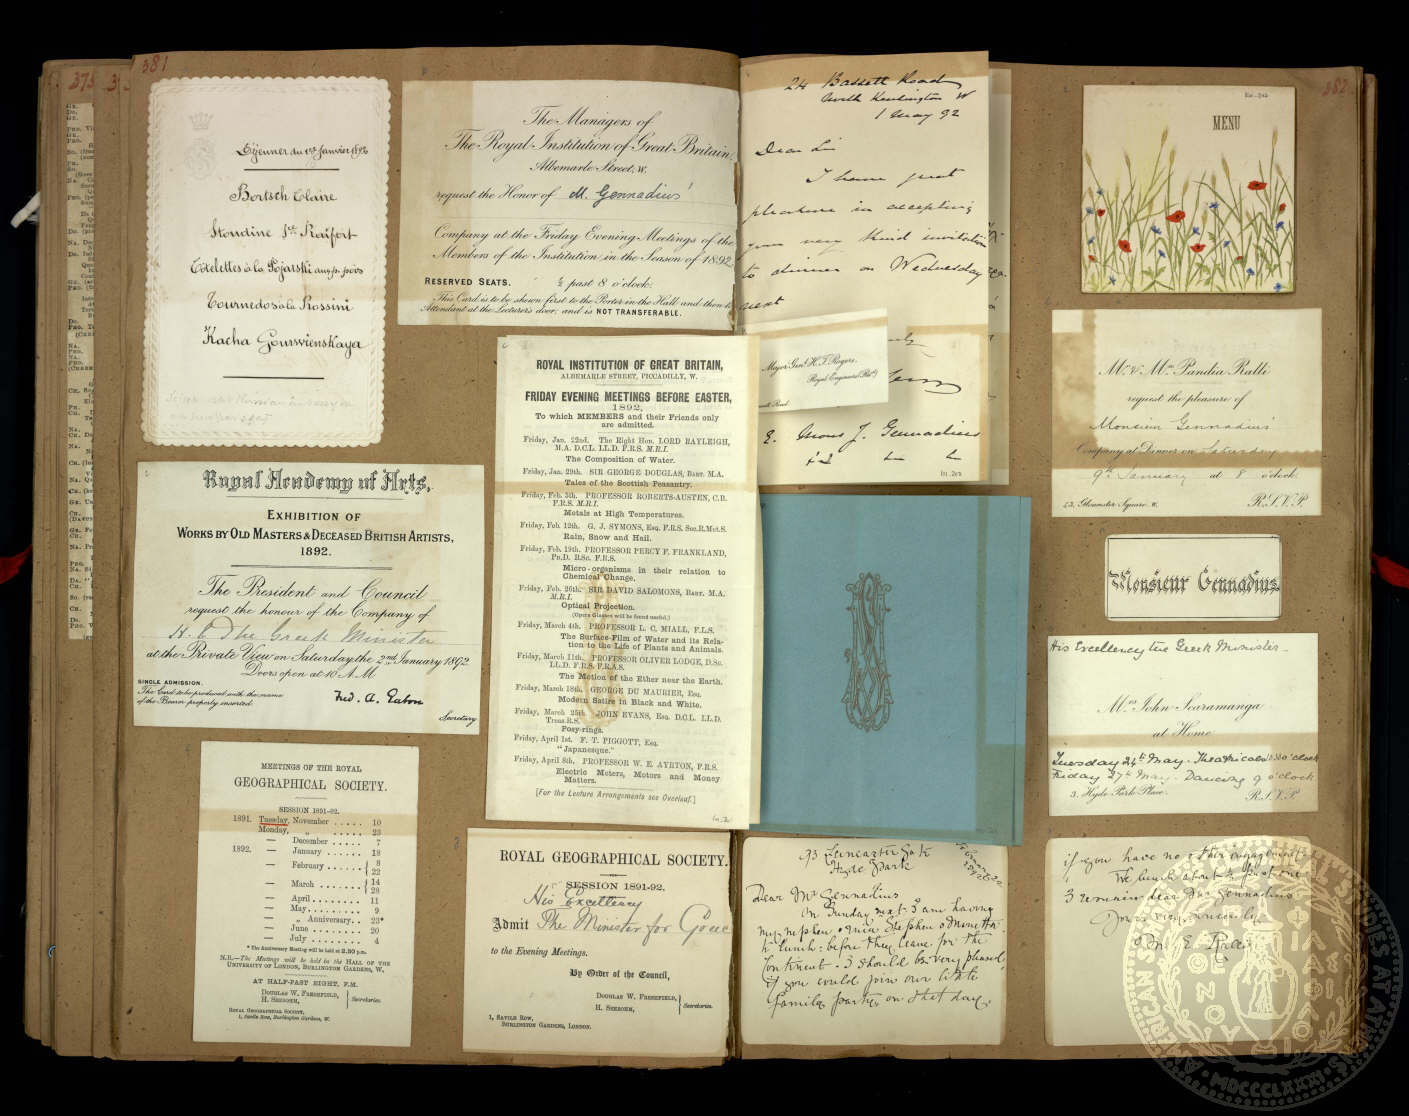 381
Déjeuner du 1er Janvier 1892
Bortsch Claire
Côtelettes à la Pojarski aux p. pois
Tournedos à la Rossini
Kacha Gourievskaya
Royal Academy of Arts.
EXHIBITION OF
WORKS BY OLD MASTERS & DECEASED BRITISH ARTISTS,
1892.
The President and Council
request the honour of the Company of
H. E The Greek Minister
at the Private View on Saturday the 2nd January 1892
Doors open at 10 A.M
SINGLE ADMISSION.
The Card to be produced with the name
of the Bearer properly inserted.
Fred. A. Eaton
Secretary
MEETINGS OF THE ROYAL
GEOGRAPHICAL SOCIETY.
SESSION 1891-92.
1891. Tuesday, November ..... 10
Monday, „ ..... 23
— December ..... 7
1892. — January ...... 18
— February ...... { 8
22
— March ....... { 14
28
— April ........ 11
— May......... 9
— „ Anniversary.. 23*
— June ........ 20
— July ........ 4
* The Anniversary Meeting will be held at 2.30 P.M.
N.B.—The Meetings will be held in the HALL OF THE
UNIVERSITY OF LONDON, BURLINGTON GARDENS, W.,
AT HALF-PAST EIGHT, P.M.
DOUGLAS W. FRESHFIELD,
H. SEEBOHM,
Secretaries.
ROYAL GEOGRAPHICAL SOCIETY,
1, Savile Row, Burlington Gardens, W.
The Managers of
The Royal Institution of Great Britain,
Albemarle Street, W.
request the Honor of M. Gennadius'
Company at the Friday Evening Meetings of the
Members of the Institution in the Season of 1892
RESERVED SEATS. ½ past 8 o'clock.
This Card is to be shewn first to the Porter in the Hall and then to
Attendant at the Lecturer's door; and is NOT TRANSFERABLE.
ROYAL INSTITUTION OF GREAT BRITAIN,
ALBEMARLE STREET, PICCADILLY, W.
FRIDAY EVENING MEETINGS BEFORE EASTER,
1892,
To which MEMBERS and their Friends only
are admitted.
Friday, Jan. 22nd. The Right Hon. LORD RAYLEIGH,
M.A. D.C.L. LL.D. F.R.S. M.R.I.
The Composition of Water.
Friday, Jan. 29th. SIR GEORGE DOUGLAS, BART. M.A.
Tales of the Scottish Peasantry.
Friday, Feb. 5th. PROFESSOR ROBERTS-AUSTEN, C.B.
F.R.S. M.R.I.
Metals at High Temperatures.
Friday, Feb. 12th. G. J. SYMONS, Esq. F.R.S. Sec.R.Met.S.
Rain, Snow and Hail.
Friday, Feb. 19th. PROFESSOR PERCY F. FRANKLAND,
PH.D. B.Sc. F.R.S.
Micro-organisms in their relation to
Chemical Change.
Friday, Feb. 26th. SIR DAVID SALOMONS, BART. M.A.
M.R.I.
Optical Projection.
(Opera Glasses will be found useful.)
Friday, March 4th. PROFESSOR L. C. MIALL, F.L.S.
The Surface-Film of Water and its Rela-
tion to the Life of Plants and Animals.
Friday, March 11th. PROFESSOR OLIVER LODGE, D.Sc.
LL.D. F.R.S. F.R.A.S.
The Motion of the Ether near the Earth.
Friday, March 18th. GEORGE DU MAURIER, Esq.
Modern Satire in Black and White.
Friday, March 25th. JOHN EVANS, Esq. D.C.L. LL.D.
Treas.R.S.
Posy-rings.
Friday, April 1st. F. T. PIGGOTT, Esq.
"Japanesque."
Friday, April 8th. PROFESSOR W. E. AYRTON, F.R.S.
Electric Meters, Motors and Money
Matters.
[For the Lecture Arrangements see Overleaf.]
ROYAL GEOGRAPHICAL SOCIETY.
SESSION 1891-92.
His Excellency
Admit The Minister for Greece
to the Evening Meetings.
By Order of the Council,
DOUGLAS W. FRESHFIELD,
H. SEEBOHM,
Secretaries.
1, SAVILE ROW,
BURLINGTON GARDENS, LONDON.
24 Bassett Road
North Kensington W
1 May 92
Dear Sir
I have great
pleasure in accepting
your very kind invitation
to dinner on Wednesday
next
Major Genl. H. T. Rogers,
Royal Engineers (Retd.)
E. Mons J. Gennadius
93 Lancaster Gate
Hyde Park
Dear Mr Gennadius
On Sunday next I am having
my nephew & niece Stephen &
to lunch: before they leave for the
Continent. I should be very pleased,
if you could join our little
family party on that day.
382
MENU
Mr. & Mrs. Pandia Ralli
request the pleasure of
Monsieur Gennadius'
Company at Dinner on Saturday
9th January at 8 o'clock.
Gloucester Square. W. R.S.V.P.
Monsieur Gennadius.
His Excellency the Greek Minister
Mrs John Scaramanga
at Home
Tuesday 24th May. Theatricals o'clock
Friday 27th May. Dancing 9 o'clock
3. Hyde Park Place. R.S.V.P
if you have no other engagement.
We lunch about past one
I remain dear Mr Gennadius
Yours very sincerely
MDCCCLXXXI